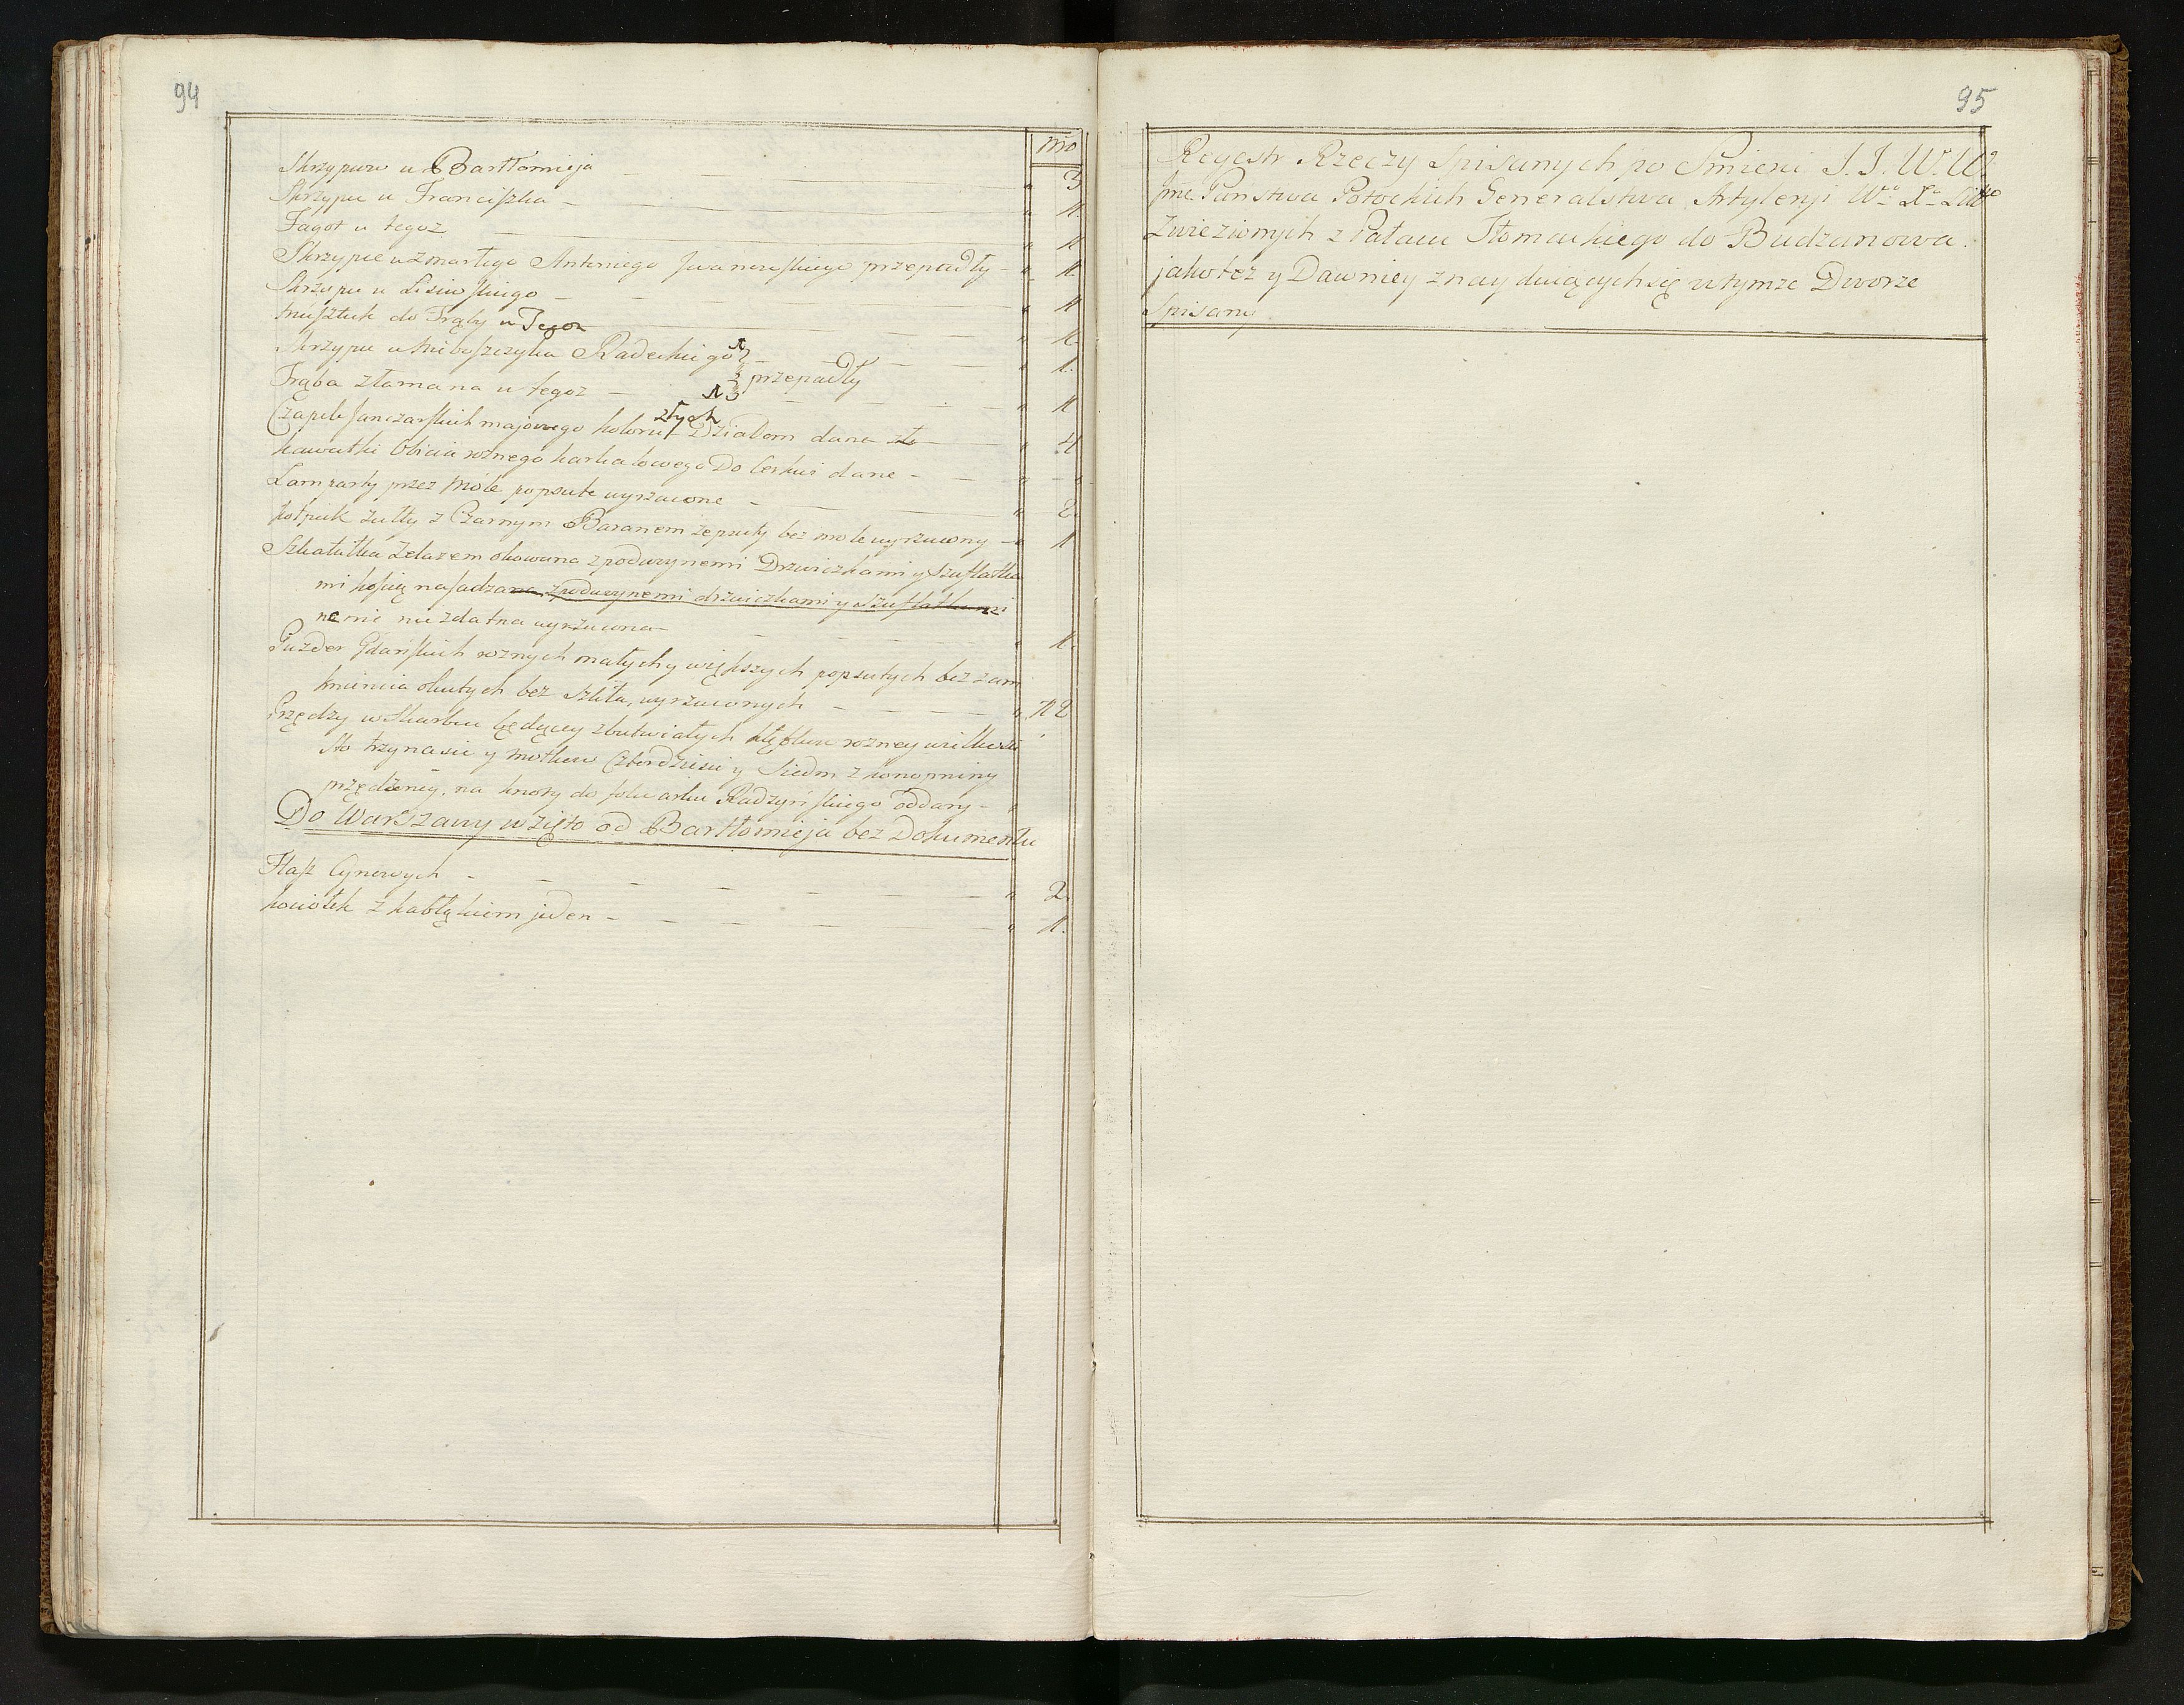 94
nro
Skrzypców u Bartłomieja — 3
Skrzypce u Franciszka — 1.
Fagot u tegoż — 1
Skrzypce u Zmarłego Antoniego Iwanowskiego przepadły — 1.
Skrzypce u Lisiewskiego — 1
Musztuk do Trąby u Tegoz — 1.
Skrzypce u Nieboszczyka Radeckiego — 1.
przepadły
Trąba złamana u tegoż — 1
Czapek Janczarskich majowego koloru złych Dziadom dane — 4
Kawałki Obicia rożnego karkatowego Do Cerkwi dane —
Lamparty przez Mole popsute wyrzucone — 2.
Kołpak żułty z Czarnym Baranem zepsuty bez mole wyrzucony — 1
Szkatułka Żelazem okowana z podwoynemi Drzwiczkami y szufladka
mi kością nasadzana z podwoynemi drzwiczkami y szufladkami
na nic niezdatna wyrzucona — 1.
Puzder Gdańskich rożnych małych y większych popsutych bez zam
knięcia okutych bez szkła, wyrzuconych — 12
Przędzy w Skarbcu będącey zbutwiałych kłębków rożney wielkości
sto trzynaście y motków Czterdzieści y Siedm z konopniny
przędzeniy, na knoty do folwarku Radzyńskiego oddany —
Do Warszawy wzięto od Bartłomieja bez Dokumentu
Flasz Cynowych — 2.
Kociołek z kabłękiem jeden — 1.
95
Regestr Rzeczy Spisanych po Śmierci J. J. W. W.
Państwa Potockich Generalstwa Artyleryi Wo Xa Litto
Zwiezionych z Pałacu Tłomackiego do Budzanowa.
jakoteż y Dawniey znayduiących się w tymże Dworze
Spisany